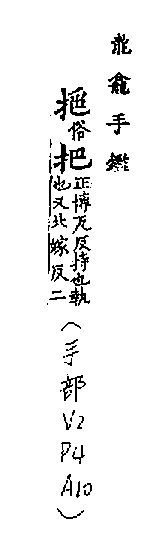 龍龕手鑑
𢱢俗把正博瓦反持也執
也又北嫁反二
(手部
V2
P4
A10)